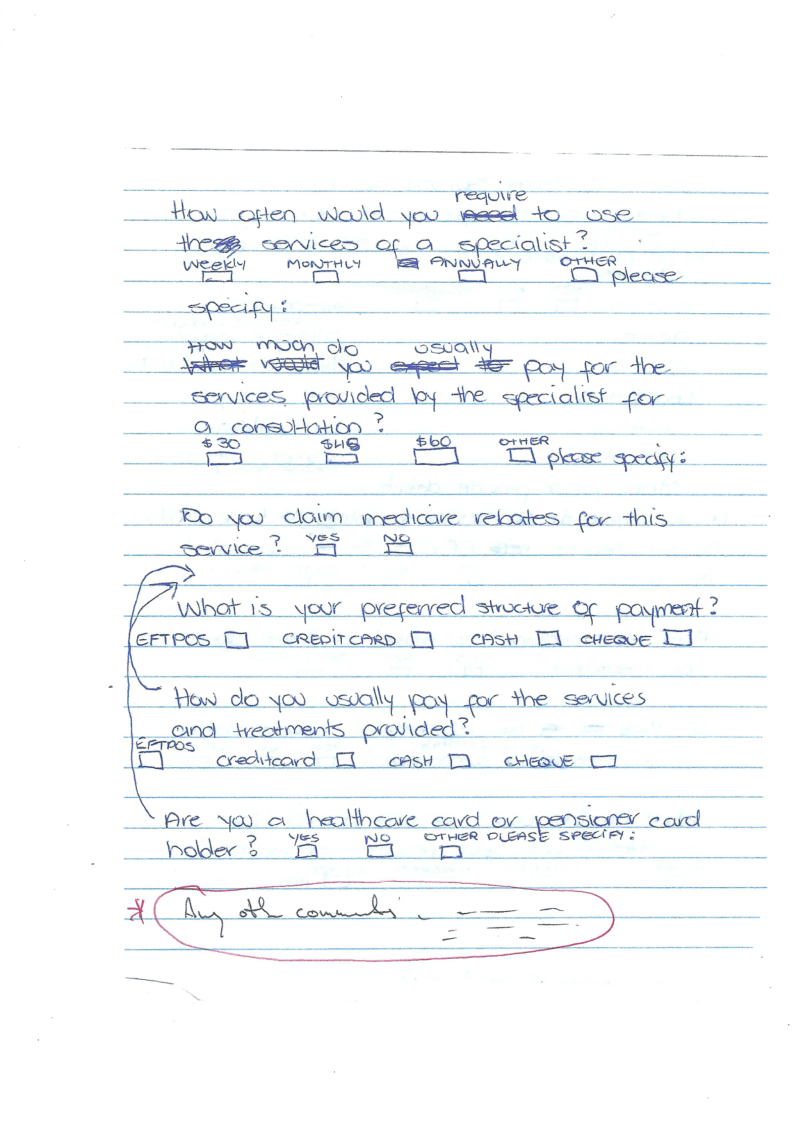 require
How often would you need to use
the services of a specialist?
Weekly MONTHLY ANNUALLY OTHER
please
specify:
HOW much do usually
What would you expect to pay for the
services provided by the specialist for
a consultation?
$30 $45 $60 OTHER
please specify:
Do you claim medicare rebates for this
service? YES NO
What is your preferred structure of payment?
EFTPOS CREDITCARD CASH CHEQUE
How do you usually pay for the services
and treatments provided?
EFTPOS
creditcard CASH CHEQUE
Are you a healthcare card or pensioner card
holder? YES NO OTHER PLEASE SPECIFY:
* Any oth comments